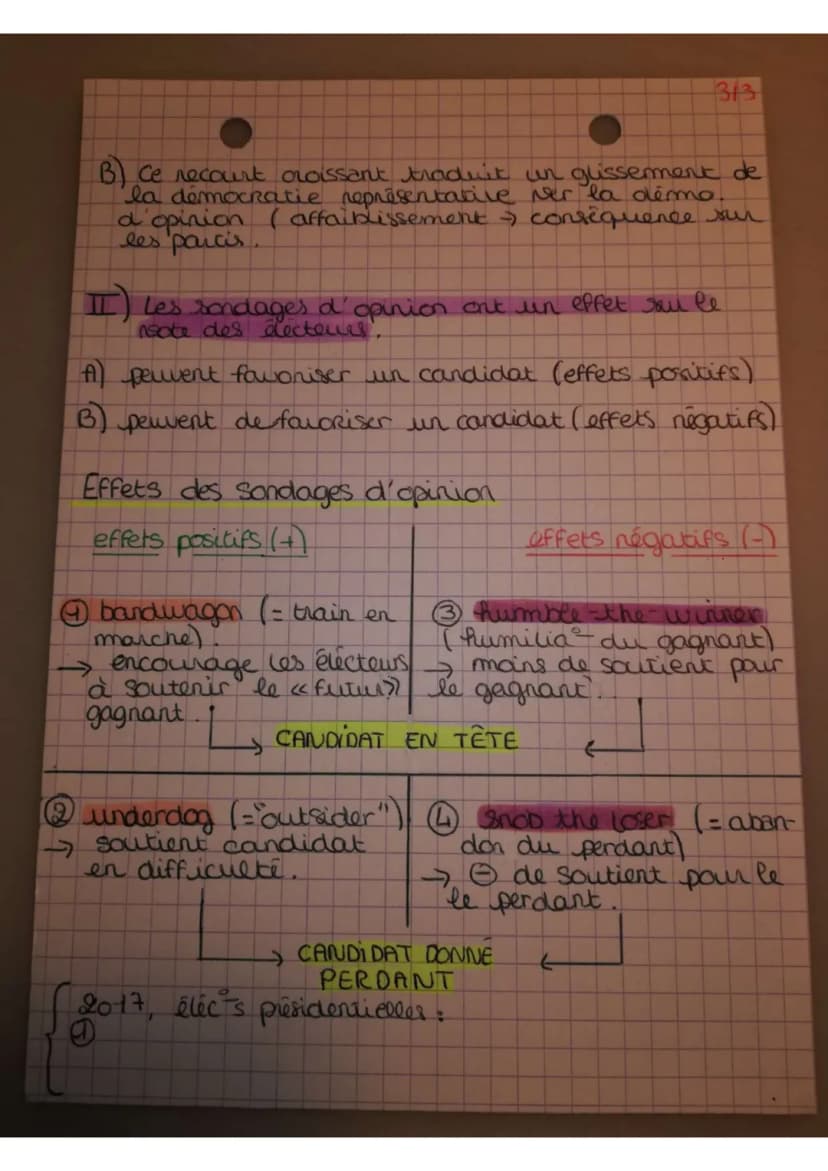 3/3
B) Ce recourt croissant traduit un glissement de
la démocratie représentative ver la démo.
d'opinion (affaiblissement → conséquence sur
les partis.
II) Les sondages d'opinion ont un effet sur le
vote des électeurs.
A) peuvent favoriser un candidat (effets positifs)
B) peuvent defavoriser un candidat (effets négatifs)
Effets des sondages d'opinion
effets positifs (+)
effets négatifs (-)
① bandwagon (= train en
marche).
→ encourage les électeurs
à soutenir le «futur»
gagnant.
③ humble-the-winner
(humilia° du gagnant)
→ moins de soutient pour
le gagnant.
→ CANDIDAT EN TÊTE ←
② underdog (="outsider")
→ soutient candidat
en difficulté.
④ snob the loser (= aban-
don du perdant)
→ ⊖ de soutient pour le
le perdant.
→ CANDIDAT DONNÉ ←
PERDANT
2017, élec°s présidentielles :
①